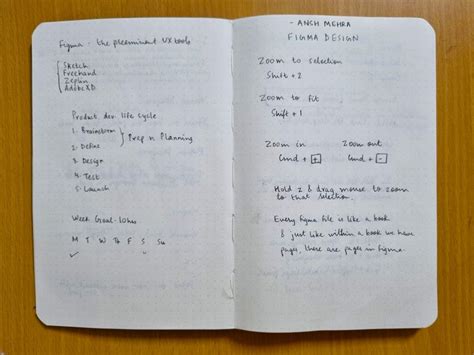 Figma - the preeminent UX tools
Sketch
Freehand
Zeplin
AdobeXD
Product dev. life cycle
1. Brainstorm
2. Define
Prep n Planning
3. Design
4. Test
5. Launch
Week Goal
M T W Th F S Su
✓
- ANSH MEHRA
FIGMA DESIGN
Zoom to selection
Shift + 2
Zoom to fit
Shift + 1
Zoom in Zoom out
Cmd + + Cmd + -
Hold Z & drag mouse to zoom
to that selection.
Every figma file is like a book
& just like within a book we have
pages, there are pages in figma.